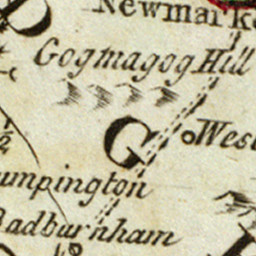 Newmark
Gogmagog Hill
G
West
½
umpington
Badburnham